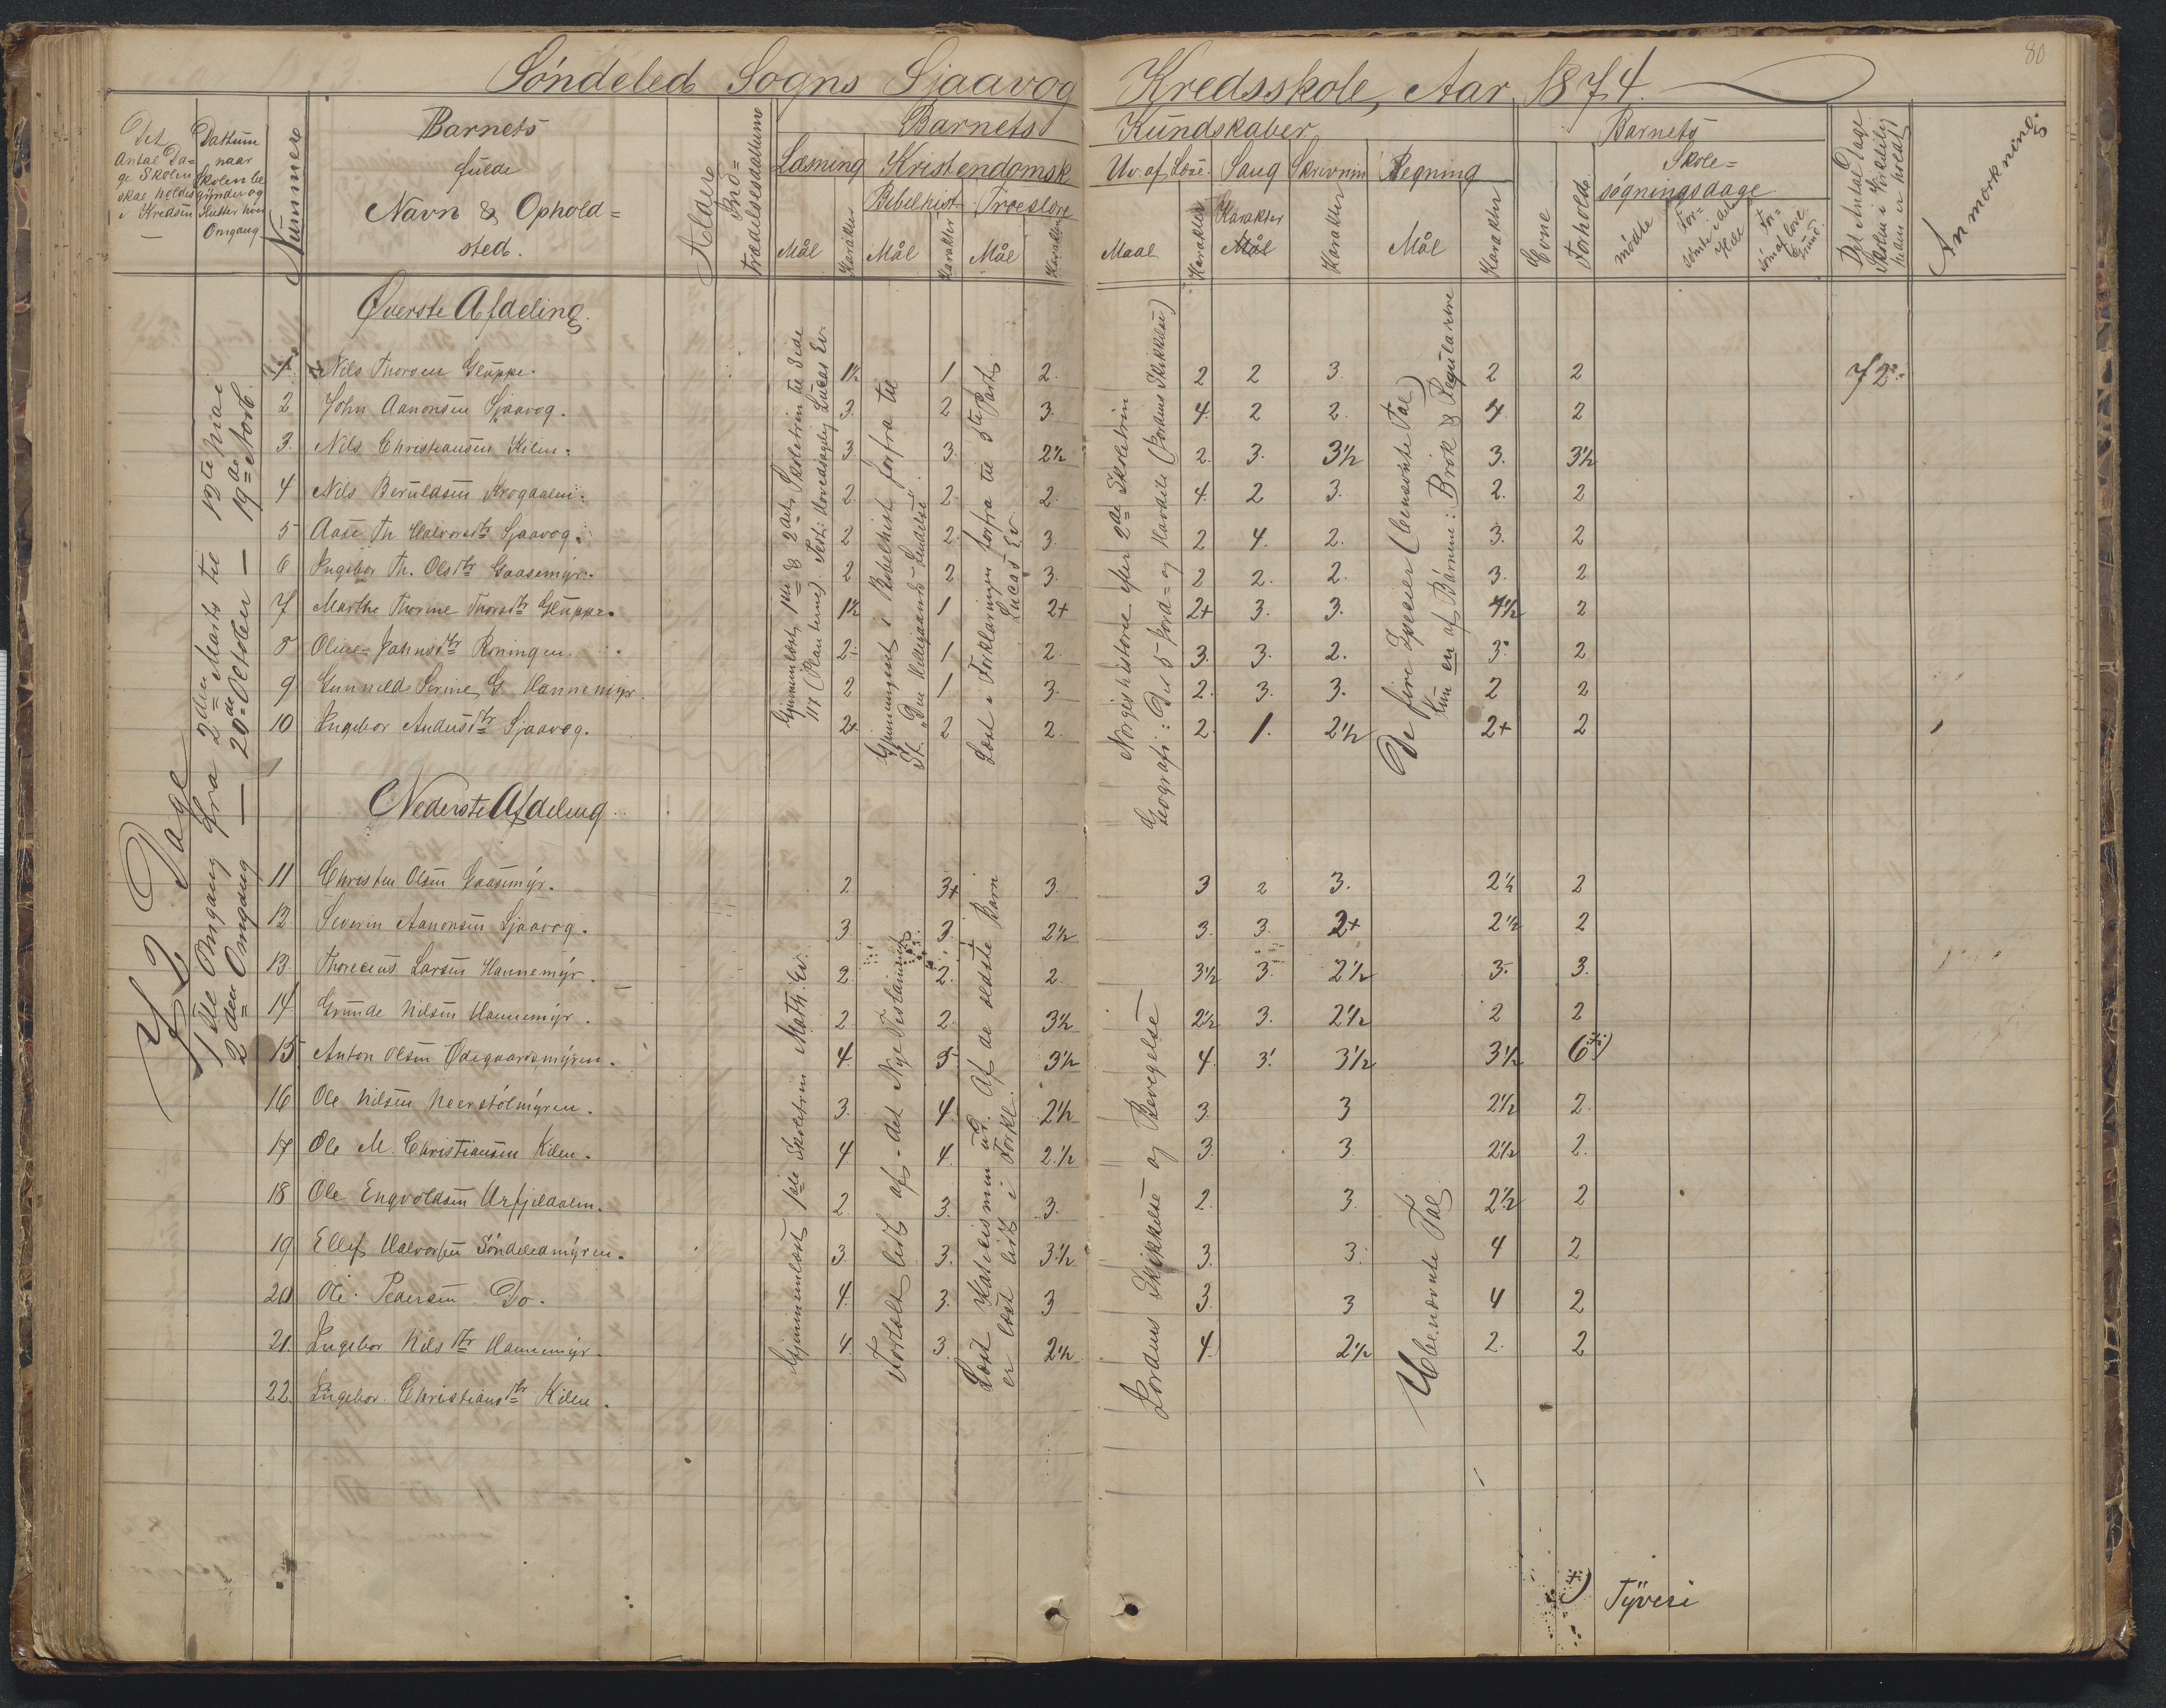 80
Söndeled Sogns Sjaavog Kredsskole, Aar 1874.
Det Antal Dage Skolen skal holdes i Kredsen
Dattum naar Skolen begÿnder og slutter hver Omgang
Nummer
Barnets fulde Navn & Opholdsted.
Alder
Indtrædelsesdatum
Barnets Kundskaber
Læsning Kristendomsk Udv. af Læse. Sang Skrivnin Regning
Bibelhist. Troeslære
Mål Karakter Mål Karakter Mål Karakter Maal Karakter Karakter Mål Karakter Mål Karakter
Evne
Forhold
Barnets Skolesøgningsdage
mødte
Forsømte i det Hele
Forsømt af lovl. Grund.
Det Antal Dage Skolen i Virkelighedn er holdt
Anmærkning.
72 Dage
1ste Omgang fra 2den Marts til 13te Mai
2den Omgang — 20de October — 19de Novb.
Øverste Afdeling.
1 Nils Thorsen Gluppe. 1½ 1 2. 2 2 3. 2 2 72
2 John Aanonsen Sjaavog. 3. 2 3. 4. 2 2. 4. 2
3. Nils Christiansen Kilen. 3. 3. 2½ 2. 3. 3½ 3. 3½
4 Nils Beruldsen Krogdalen. 2. 2. 2. 4. 2 3. 2. 2
5 Aase Th Halvorsdtr Sjaavog. 2 2. 3. 2 4. 2. 3. 2
6 Ingebor Th. Olsdtr Gaasemÿr. 2 2 3. 2 2. 2. 3. 2
7 Marthe Thorine Thorsdtr Gluppe. 1½ 1 2+ 2+ 3. 3. 4½ 2
8 Oline Jahnsdtr Röningen. 2. 1 2. 3. 3. 2. 3. 2
9 Gunnild Serine G. Hannemÿr. 2 1 3. 2. 3. 3. 2 2
10 Ingebor Andersdtr Sjaavog. 2+ 2 2. 2. 1. 2½ 2+ 2
Gjennemlæst 1ste & 2det Skoletrin til Side 117 (Planterne) Test: Hovedsagelig Lucas Ev.
Gjennemgaaet i Bibelhist. forfra til St. "Den Helligaands Sendelse".
Læst i Forklaringen forfra til 5te Part. Lucas Ev.
Norgeshistorie efter 2de Skoletrin
Geografi: De 5 Jord- og Havdele (Jordens Skikkelse)
De fire Specier (benævnte Tal)
Kun en af Børnene: Brök & Regulatrie
Nederste Afdeling
11 Christen Olsen Gaasemÿr. 2. 3+ 3. 3 2 3. 2½ 2
12 Severin Aanonsen Sjaavog. 3 3. 2½ 3. 3. 2+ 2½ 2
13. Thorecius Larsen Hannemÿr. 2. 2. 2. 3½ 3. 2½ 3. 3.
14 Grunde Nilsen Hannemÿr. 2. 2. 3½ 2½ 3. 2½ 2 2
15 Anton Olsen Ødegaardsmÿren. 4. 5. 3½ 4. 3. 3½ 3½ 6 *)
16 Ole Nilsen Neerstölmÿren. 3. 4. 2½ 3. 3 2½ 2.
17 Ole M. Christiansen Kilen. 4 4. 2½ 3. 3 2½ 2.
18 Ole Engvoldsen Urfjeldalen. 2. 3. 3. 2. 3. 2½ 2
19 Ellef Halvorsen Söndeledmÿren. 3. 3. 3½ 3. 3. 4 2
20 Ole Pedersen Do. 4. 3. 3 3. 3 4 2
21. Ingebor Nilsdtr Hannemÿr. 4. 3. 2½ 4. 2½ 2. 2
22. Ingebor Christiansdtr Kilen.
Gjennemlæst 1ste Skoletrin Math. Ev.
Fortalt lidt af det Nye Testamente
Læst Katecismen ud. Af de ældste Børn er læst lidt i Forkl.
Jordens Skikkelse og Bevægelse
Ubenævnte Tal
*) Tÿveri